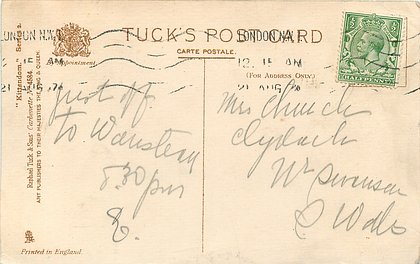 LONDON. N.W.1
12. 15 AM
21 AUG
TUCK'S POST CARD
CARTE POSTALE.
(FOR ADDRESS ONLY.)
LONDON. N.W.1
12. 15 AM
21 AUG
HALFPENNY
"Kingsfordom." Series
Raphael Tuck & Sons'
ART PUBLISHERS TO THEIR MAJESTIES THE KING & QUEEN.
Just off
to Wanstead
5.30 pm
E.
Mrs Church
Clydach
Nr Swansea
S Wales
Printed in England.